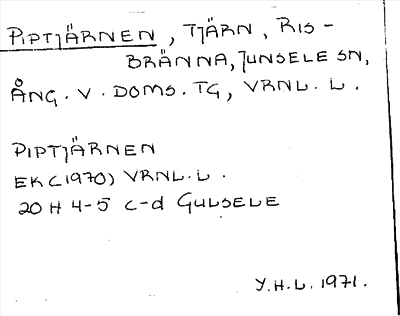 PIPTJÄRNEN, TJÄRN, RIS-
BRÄNNA, JUNSELE SN,
ÅNG. V. DOMS. TG, VRNL. L.
PIPTJÄRNEN
EK (1970) VRNL. L.
20 H 4-5 c-d GULSELE
Y.H.L. 1971.